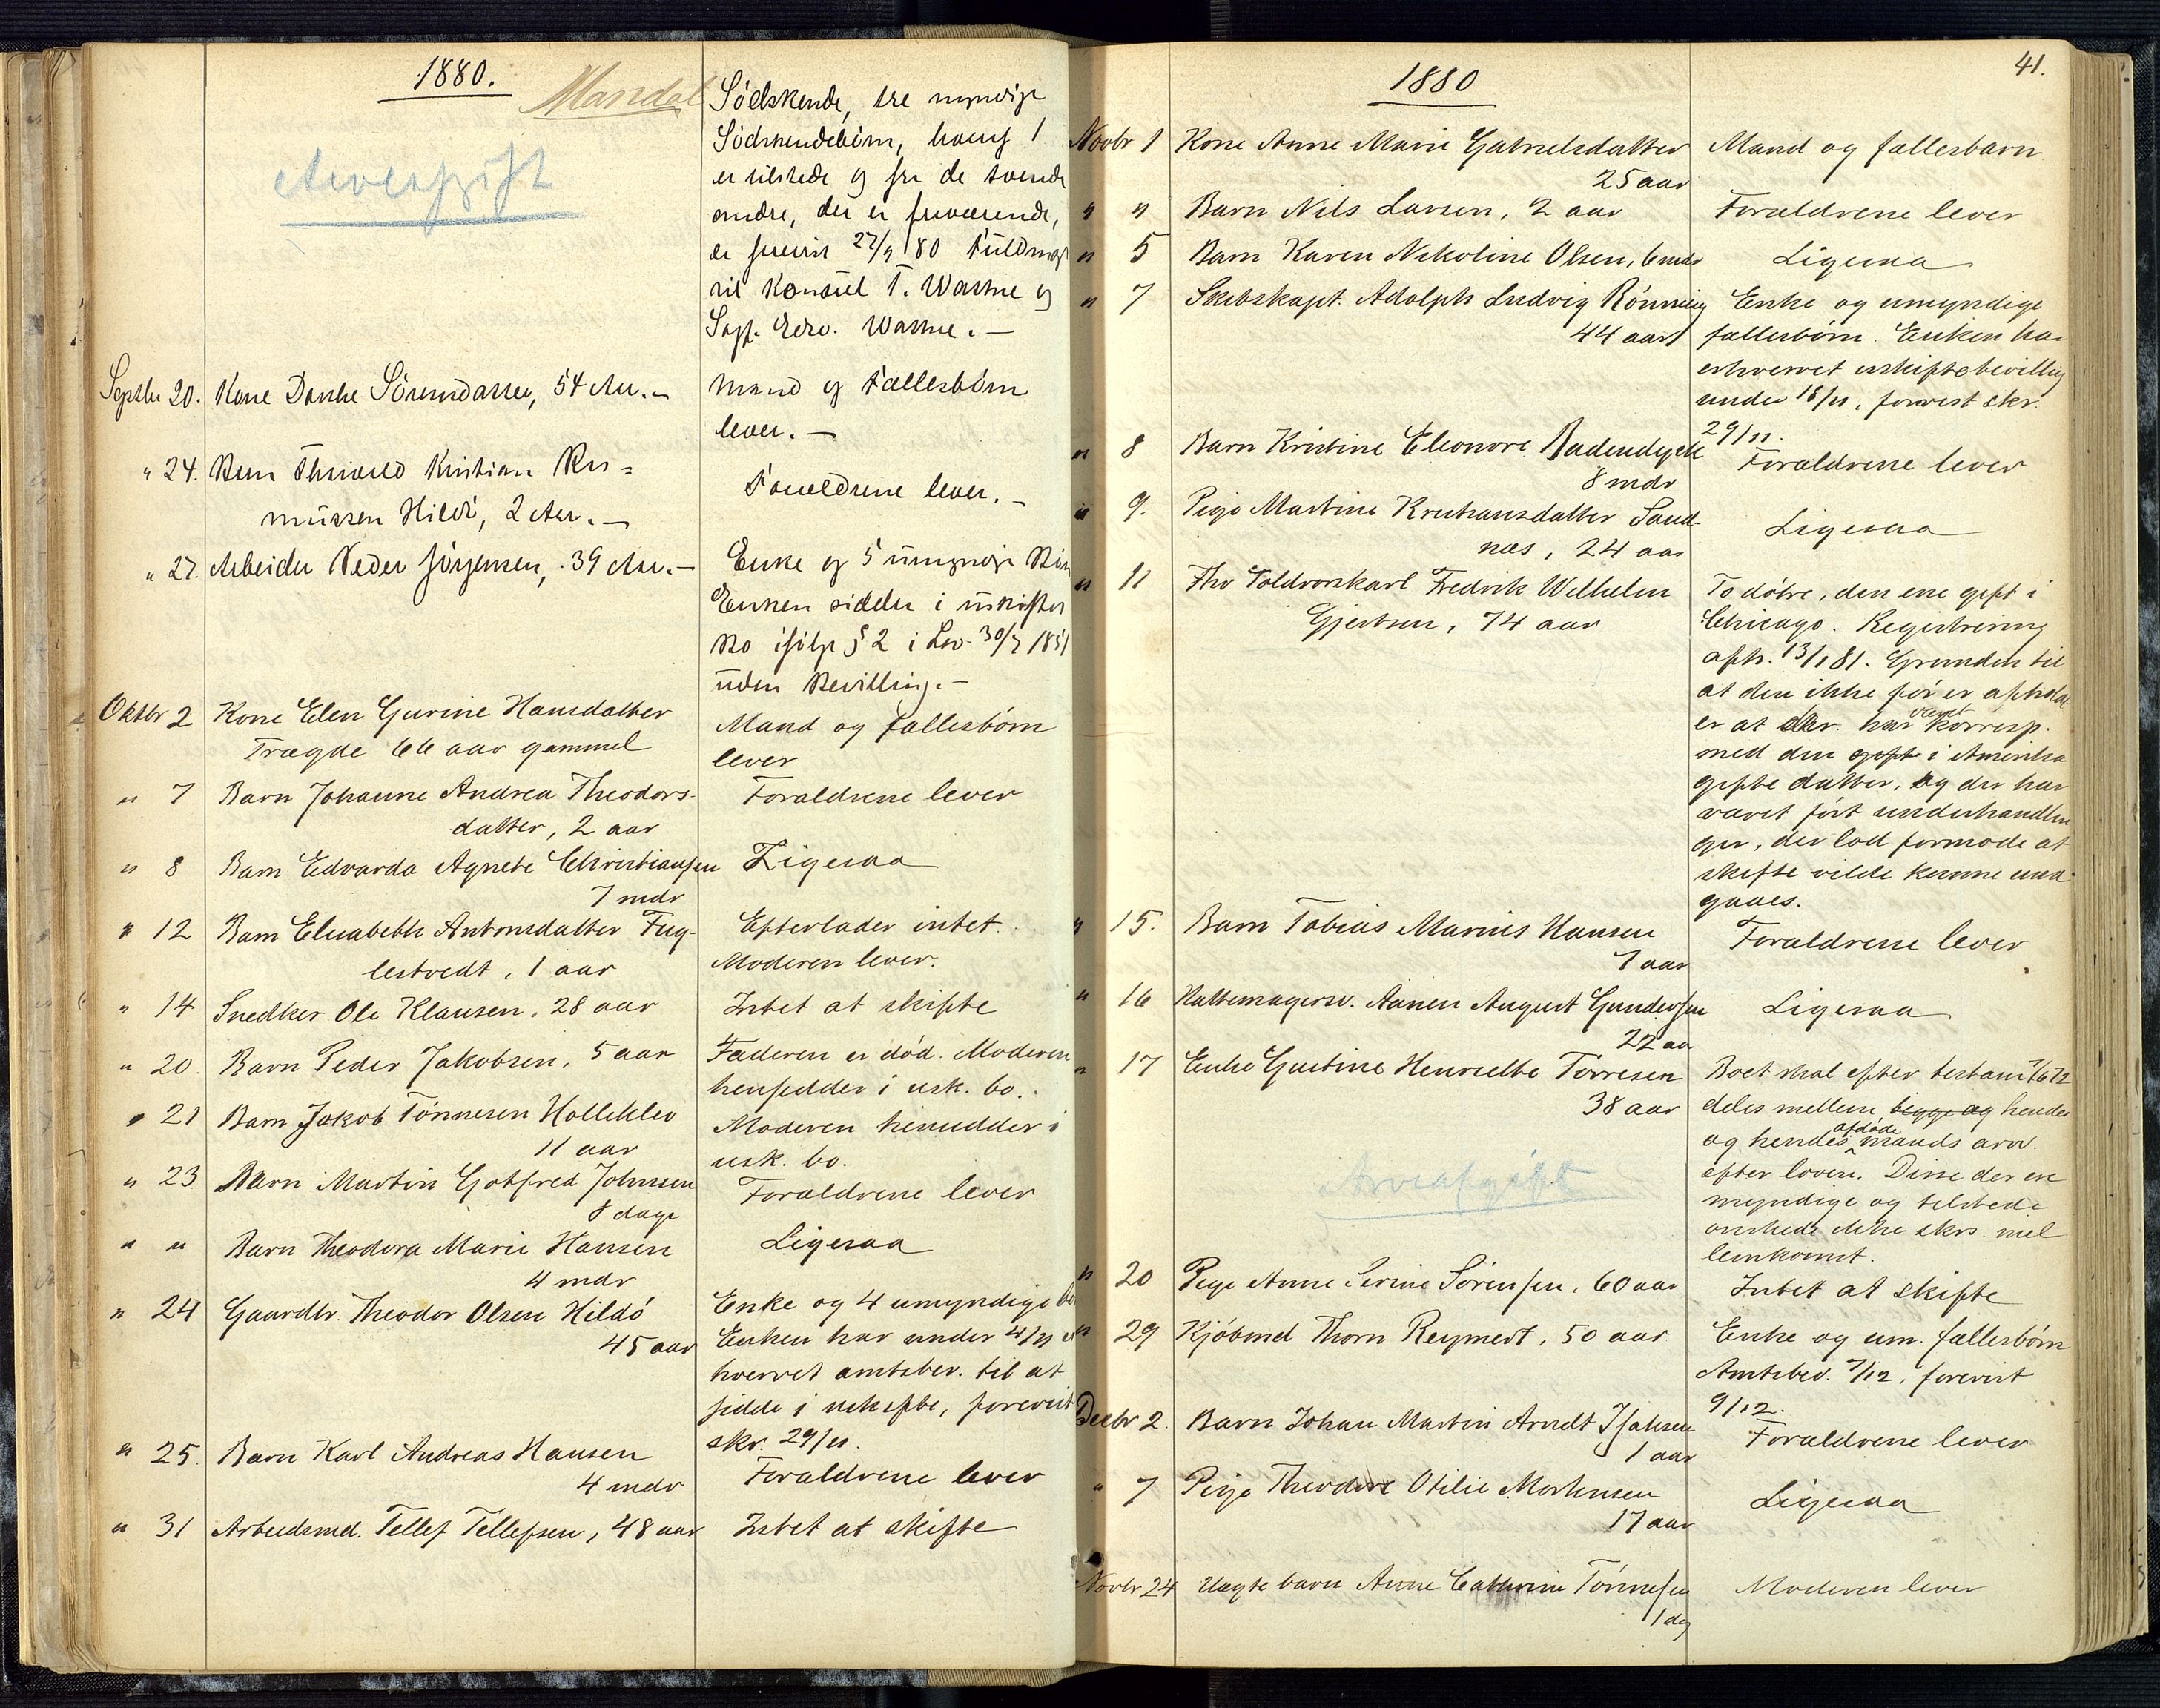 1880.
Mandal
Arveafgift
Södskende, tre myndige
Södskendebörn, hvoraf 1
er tilstede og fra de tvende
andre, der er fraværende,
er forevist 27/9 80 Fuldmagt
til Konsul T. Wattne og
Sagf. Edv. Wattne. —
Septbr 20. Kone Dorthe Sörensdatter, 54 Aar. —
Mand og Fællesbörn
lever. —
" 24. Barn Thorvald Kristian Ras=
mussen Hildö, 2 Aar. —
Forældrene lever. —
" 27. Arbeider Peder Jörgensen, 39 Aar. —
Enke og 5 umyndige Börn
Enken sidder i uskiftet
Bo ifölge § 2 i Lov 30/7 1851
uden Bevilling. —
Oktbr 2 Kone Elen Gurine Hansdatter
Trægde 66 aar gammel
Mand og fællesbörn
lever
" 7 Barn Johanne Andrea Theodors-
datter, 2 aar
Forældrene lever
" 8 Barn Edvarda Agnete Christiansen
7 mdr
Ligesaa
" 12 Barn Elisabeth Antonsdatter Fug-
lestvedt, 1 aar
Efterlader intet.
Moderen lever.
" 14 Snedker Ole Klausen, 28 aar
Intet at skifte
" 20. Barn Peder Jakobsen, 5 aar
Faderen er död. Moderen
hensidder i usk. bo.
" 21 Barn Jakob Tönnesen Holleklev
11 aar
Moderen hensidder i
usk. bo.
" 23 Barn Martin Gotfred Johnsen
8 dage
Forældrene lever
" " Barn Theodora Marie Hansen
4 mdr
Ligesaa
" 24 Gaardbr. Theodor Olsen Hildö
45 aar
Enke og 4 umyndige bö
Enken har under 4/11 er
hvervet amtsbev. til at
sidde i uskifte, forevist
skr. 29/11.
" 25. Barn Karl Andreas Hansen
4 mdr
Forældrene lever
" 31 Arbeidsmd. Tellef Tellefsen, 48 aar
Intet at skifte
41.
1880
Novbr 1 Kone Anne Marie Gabrielsdatter
25 aar
Mand og fællesbarn
" " Barn Nils Larsen, 2 aar
Forældrene lever
" 5 Barn Karen Nikoline Olsen, 6 mdr
Ligesaa
" 7 Skibskapt. Adolph Ludvig Rönning
44 aar
Enke og umyndige
fællesbörn. Enken har
erhvervet uskiftebevilling
under 18/11, forevist skr.
29/11.
" 8 Barn Kristine Eleonore Badendyck
8 mdr
Forældrene lever
" 9. Pige Martine Kristiansdatter Sand-
næs, 24 aar
Ligesaa
" 11 Fhv Toldvorskarl Fredrik Wilhelm
Gjertsen, 74 aar
To döbre, den ene gift i
Chicago. Registrering
afh. 13/1 81. Grunden til
at den ikke för er afholdt
er at der har været korresp.
med den gift i Amerika
gifte datter, og der har
været fört underhandlin
ger, der lod formode at
skifte vilde kunne und
gaaes.
" 15. Barn Tobias Marius Hansen
1 aar
Forældrene lever
" 16 Aanen August Gundersen
22 aar
Ligesaa
" 17 Enke Gustine Henriette Torresen
38 aar
Boet skal efter testam 7/6 72
deles mellem begge og hendes
og hendes afdöde mands arv.
efter loven. Disse der ere
myndige og tilstede
önskede ikke skrs. mel
lemkomst.
Arveafgift
" 20 Pige Anne Serine Sörensen, 60 aar
Intet at skifte
" 29 Kjöbmd Thorn Reymert, 50 aar
Enke og um. fællesbörn
Amtsbev. 7/12, forevist
9/12.
Decbr 2. Barn Johan Martin Arndt Isaksen
1 aar
Forældrene lever
" 7 Pige Theodore Otilie Mortensen
17 aar
Ligesaa
Novbr 24 Uægte barn Anne Cathrine Tönnesen
1 dag
Moderen lever